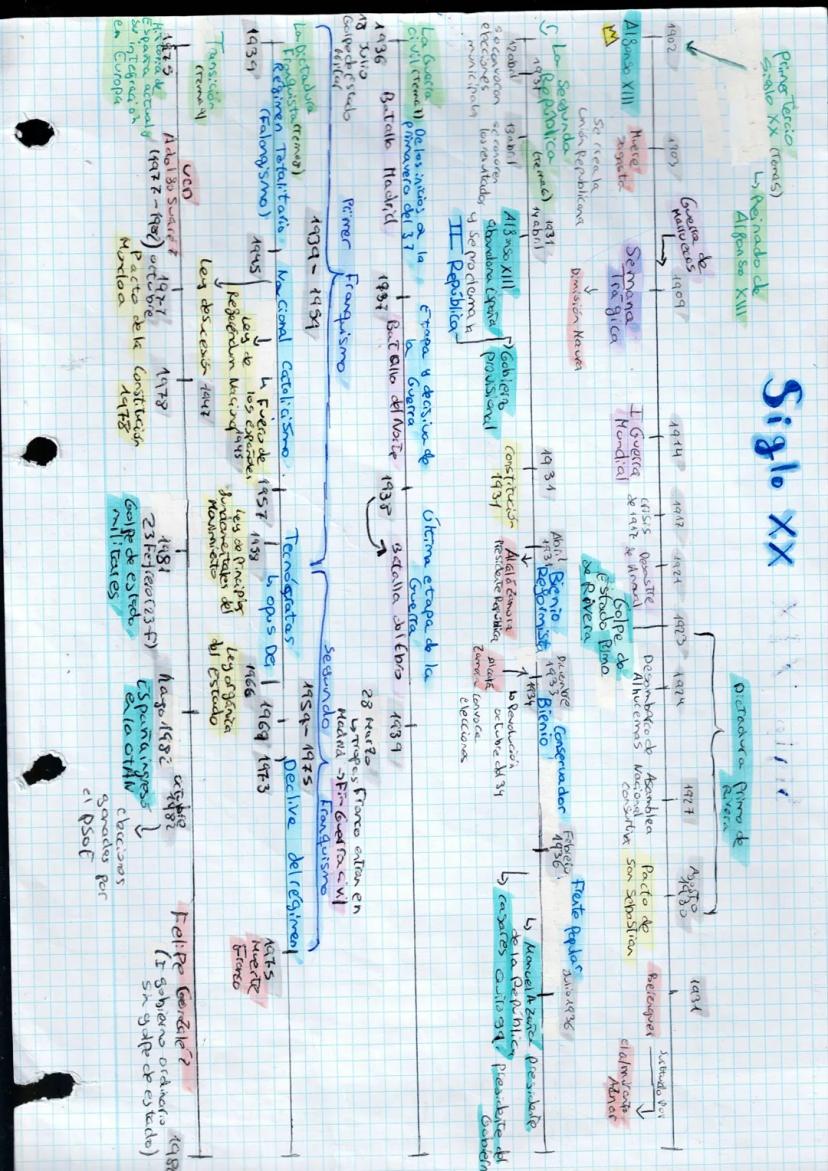 Siglo XX
Primer tercio
Siglo XX (tema 5)
↳ Reinado de
Alfonso XIII
Dictadura Primo de
Rivera
1902
1909
1914
1917
1921
1923
1927
Agosto
1930
1931
Alfonso XIII
Muere
Sagasta
Se crea la
Unión Republicana
Guerra de
Marruecos
Semana
Trágica
Dimisión Maura
I Guerra
Mundial
crisis
de 1917
Desastre
de Annual
Golpe de
Estado Primo
de Rivera
Desembarco de
Alhucemas
Asamblea
Nacional
consultiva
Pacto de
San Sebastian
Berenguer
sustituido por
el almirante
Aznar
La Segunda
República (tema 6)
1931
12 abril
se convocan
elecciones
municipales
13 abril
se conocen
los resultados
1931
14 abril
Alfonso XIII
abandona España
y se proclama la
II República
Gobierno
provisional
1931
Constitución
1931
Abril
1931
Bienio
Reformista
Alcalá Zamora
Presidente República
Diciembre
1933
Bienio
Conservador
1934
↳ Revolución
octubre del 34
Alcalá
Zamora convoca
elecciones
Febrero
1936
Frente Popular
Julio 1936
↳ Manuel Azaña presidente
de la República
↳ Casares Quiroga presidente del
La Guerra
Civil (tema 7)
De los inicios a la
primavera del 37
Etapa decisiva de
la Guerra
Última etapa de la
Guerra
1936
18 Julio
Golpe de estado
Militar
Batalla Madrid
1937
Batalla del Norte
1938
Batalla del Ebro
1939
28 Marzo
↳ Tropas Franco entran en
Madrid → Fin Guerra civil
Primer Franquismo
1939 - 1959
Segundo Franquismo
1959 - 1975
La Dictadura
Franquista (tema 8)
Régimen Totalitario
(Falangismo)
Nacional Catolicismo
Tecnócratas
↳ Opus Dei
Declive del régimen
1939
1945
↳ Fuero de
los españoles
↳ Ley de
Referéndum Nacional 1945
Ley de sucesión 1947
1957
1958
Ley de Principios
fundamentales del
Movimiento
1966
Ley orgánica
del Estado
1969
1973
1975
Muerte
Franco
Transición
(tema 9)
1975
Historia de
España actual y
su integración
en Europa
UCD
Adolfo Suárez
1977
octubre
Pacto de la
Moncloa
1978
Constitución
1978
1981
23 Febrero (23-F)
Golpe de estado
militares
Mayo 1982
España ingresa
en la OTAN
octubre
1982
elecciones
ganadas por
el PSOE
Felipe González
(I gobierno ordinario
sin golpe de estado)